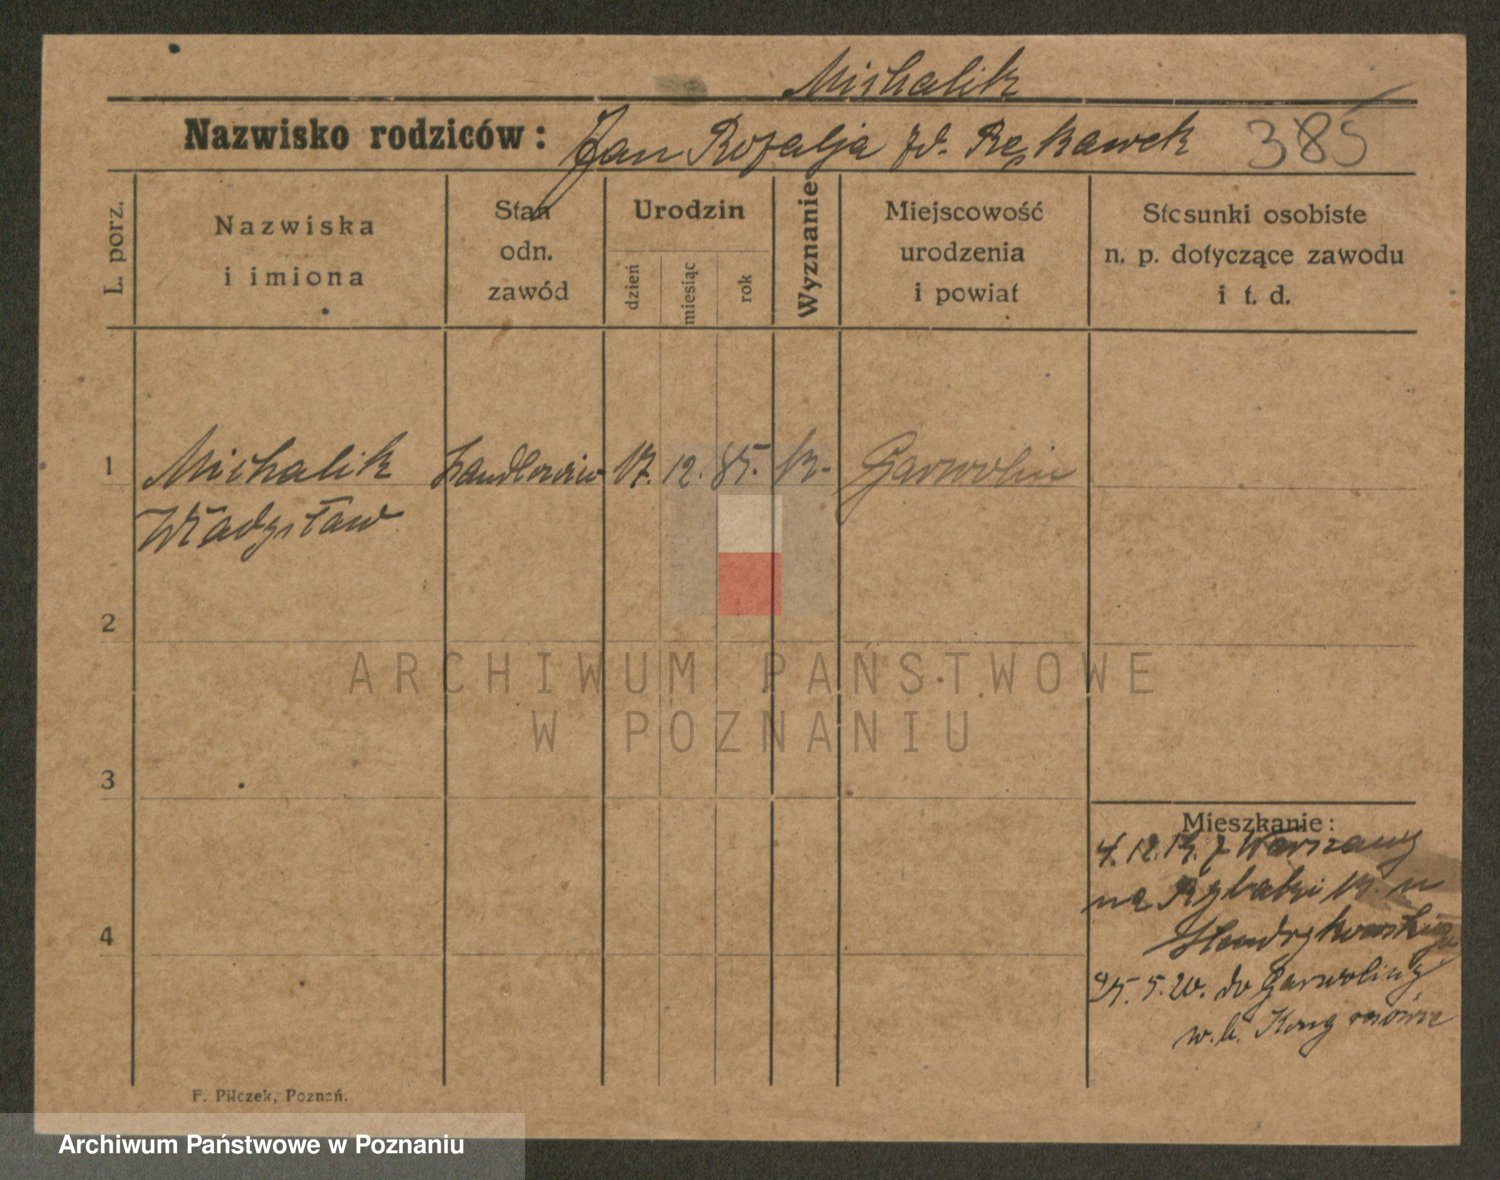 Michalik
Nazwisko rodziców: Jan Rozalja zd. Rękawek 385
L. porz.
Nazwiska
i imiona
Stan
odn.
zawód
Urodzin
dzień
miesiąc
rok
Wyznanie
Miejscowość
urodzenia
i powiat
Stosunki osobiste
n. p. dotyczące zawodu
i t. d.
1 Michalik handlowiec 17. 12. 85. Garwolin
Władysław
2
3
4
Mieszkanie:
4.12.19. z Warszawy
na Rybaki u
25.5.20. do Garwoliny
w. h. Kongresówce
F. Pilczek, Poznań.
ARCHIWUM PAŃSTWOWE
W POZNANIU
Archiwum Państwowe w Poznaniu